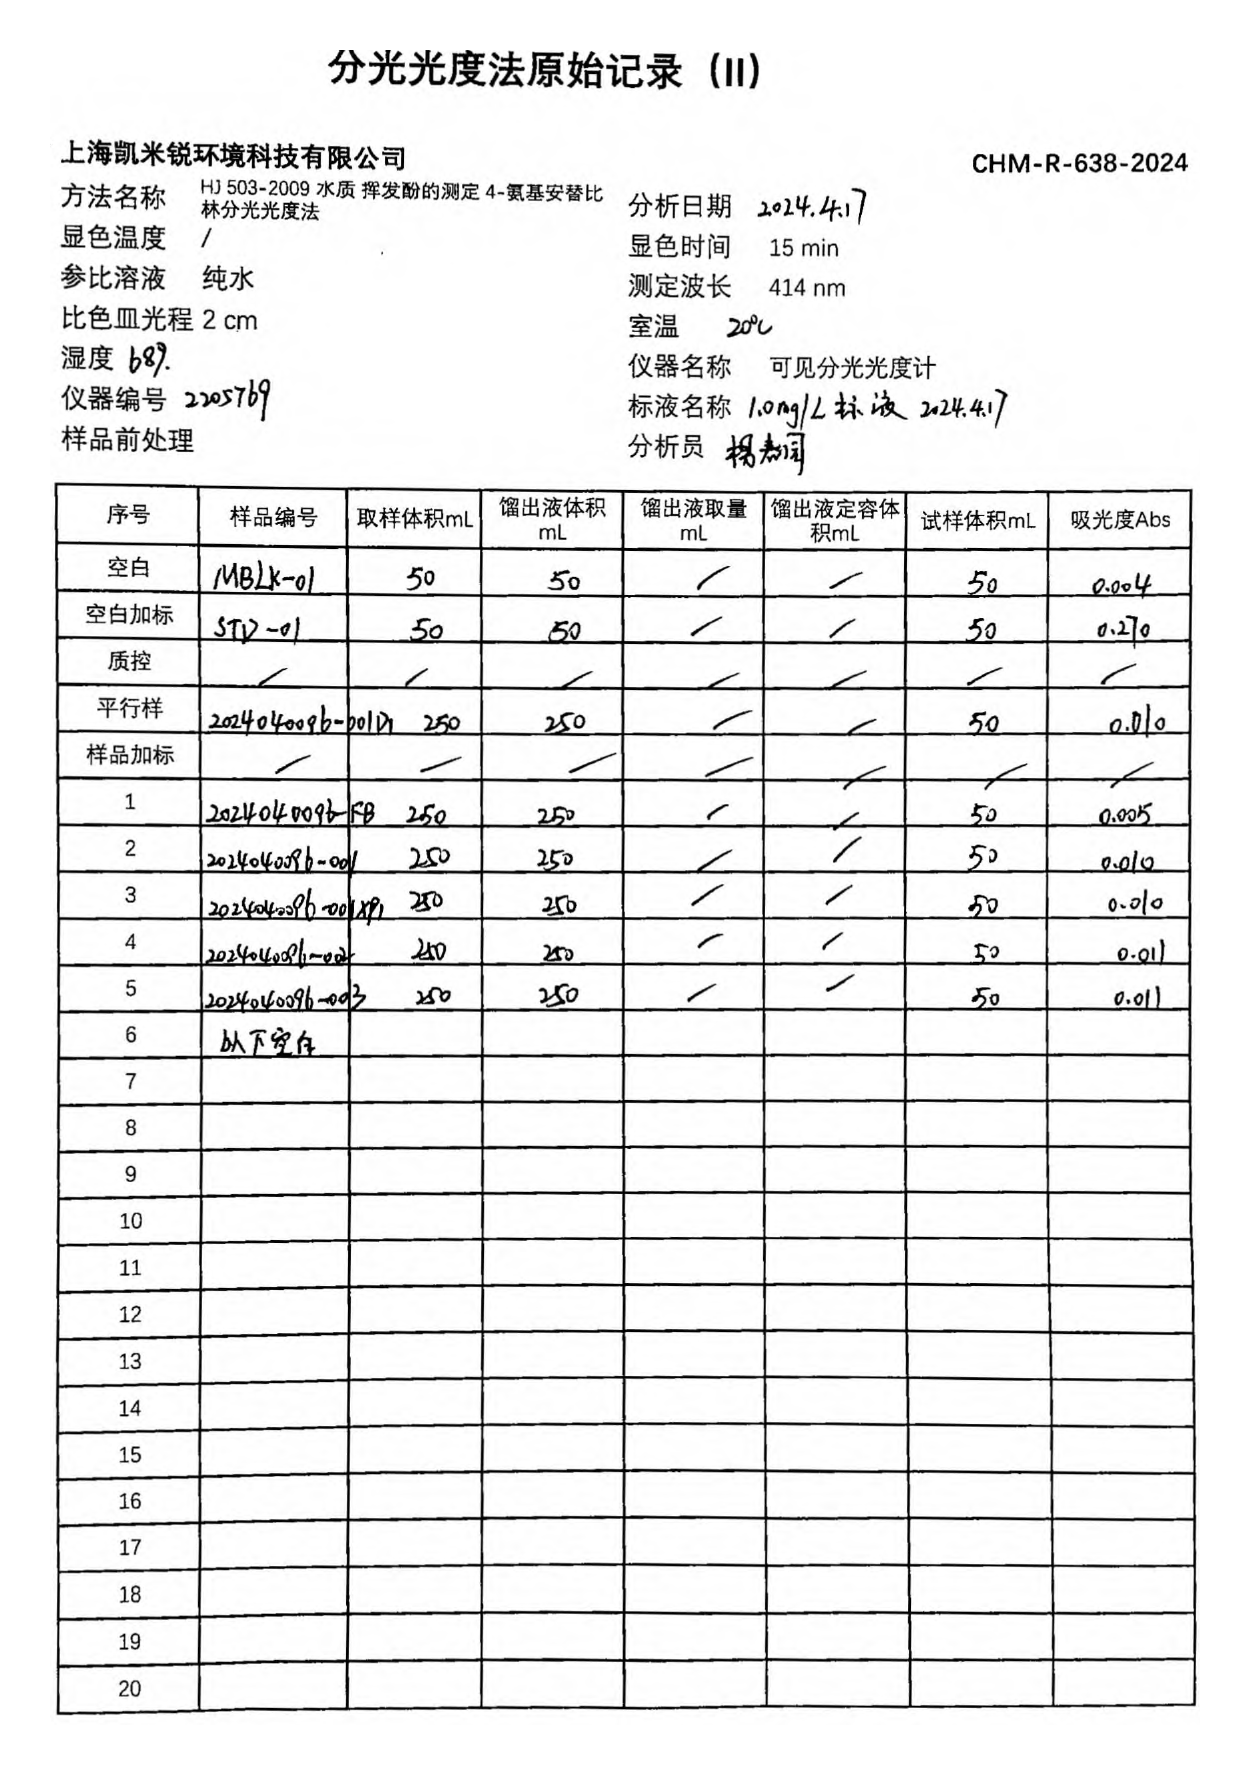 分光光度法原始记录（II）
上海凯米锐环境科技有限公司
CHM-R-638-2024
方法名称 HJ 503-2009 水质 挥发酚的测定 4-氨基安替比林分光光度法
分析日期 2024.4.17
显色温度 /
显色时间 15 min
参比溶液 纯水
测定波长 414 nm
比色皿光程 2 cm
室温 20℃
湿度 68%
仪器名称 可见分光光度计
仪器编号 2205769
标液名称 1.0mg/L 标液 2024.4.17
样品前处理
分析员
序号 样品编号 取样体积mL 馏出液体积mL 馏出液取量mL 馏出液定容体积mL 试样体积mL 吸光度Abs
空白 MBLK-01 50 50 / / 50 0.004
空白加标 STD-01 50 50 / / 50 0.270
质控 / / / / / / /
平行样 2024040096-001D1 250 250 / / 50 0.010
样品加标 / / / / / / /
1 2024040096-FB 250 250 / / 50 0.005
2 2024040096-001 250 250 / / 50 0.010
3 2024040096-001XP1 250 250 / / 50 0.010
4 2024040096-002 250 250 / / 50 0.011
5 2024040096-003 250 250 / / 50 0.011
6 以下空白
7
8
9
10
11
12
13
14
15
16
17
18
19
20